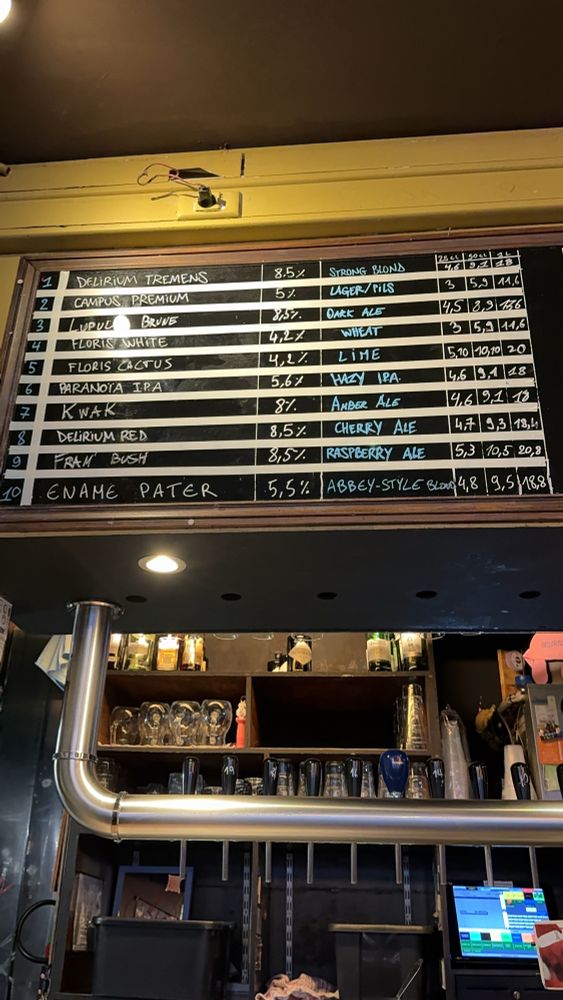 25 cl 50 cl 1 L
1 DELIRIUM TREMENS 8.5% STRONG BLOND 4,6 9,1 18
2 CAMPUS PREMIUM 5% LAGER/PILS 3 5,9 11,6
3 LUPUL BRUNE 8,5% DARK ALE 4,5 8,9
4 FLORIS WHITE 4,2% WHEAT 3 5,9 11,6
5 FLORIS CACTUS 4,2% LIME 5,10 10,10 20
6 PARANOIA IPA 5,6% HAZY IPA 4,6 9,1 18
7 KWAK 8% AMBER ALE 4,6 9,1 18
8 DELIRIUM RED 8,5% CHERRY ALE 4,7 9,3 18,4
9 FRAM' BUSH 8,5% RASPBERRY ALE 5,3 10,5 20,8
10 ENAME PATER 5,5% ABBEY-STYLE BLOND 4,8 9,5 18,8